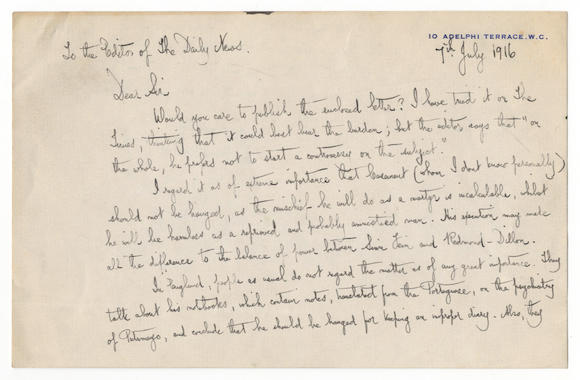 10 ADELPHI TERRACE. W.C.
7th July 1916
To the Editor of The Daily News.
Dear Sir
Would you care to publish the enclosed letter? I have tried it on The
Times, thinking that it could best bear the burden; but the editor says that "on
the whole, he prefers not to start a controversy on the subject".
I regard it as of extreme importance that Casement (whom I dont know personally)
should not be hanged, as the mischief he will do as a martyr is incalculable, whilst
he will be harmless as a reprieved and probably unnoticed man. His execution may make
all the difference to the balance of power between Sinn Fein and Redmond-Dillon.
In England, people as usual do not regard the matter as of any great importance. They
talk about his notebooks, which contain notes, translated from the Portuguese, on the psychiatry
of Putumayo, and conclude that he should be hanged for keeping an improper diary. Also, they